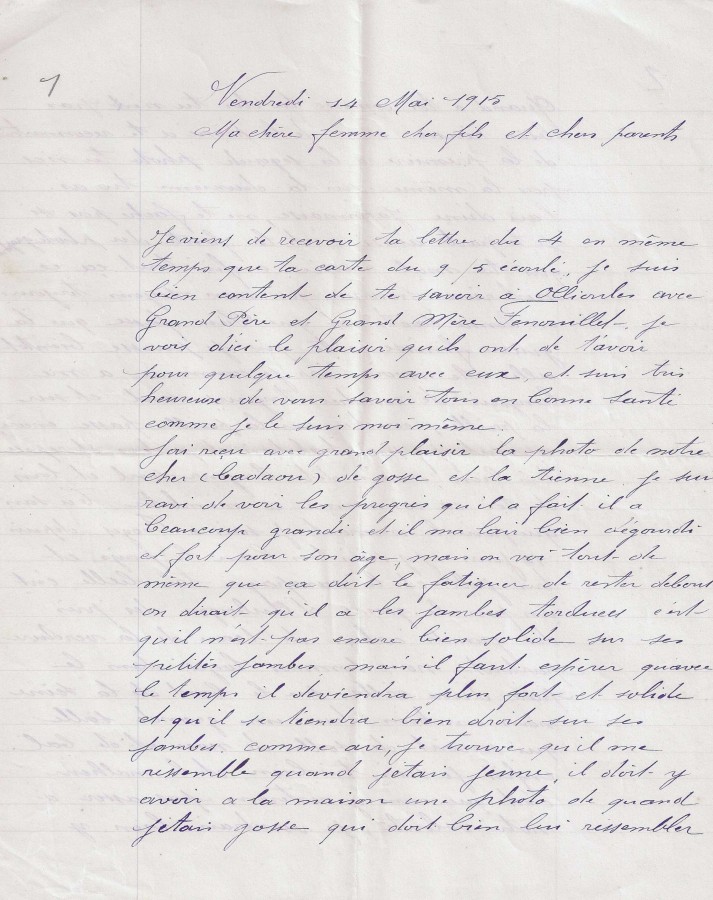 1
Vendredi 14 Mai 1915
Ma chère femme cher fils et chers parents
Je viens de recevoir ta lettre du 4 en même
temps que ta carte du 9/5 écoulé, je suis
bien content de te savoir à Ollioules avec
Grand Père et Grand Mère Fenouillet. je
vois dici le plaisir quils ont de t'avoir
pour quelque temps avec eux, et suis très
heureuse de vous savoir tous en bonne santé
comme je le suis moi même.
J'ai reçu avec grand plaisir la photo de notre
cher (Cadaou) de gosse et la tienne. je suis
ravi de voir les progrès qu'il a fait il a
beaucoup grandi et il ma lair bien dégourdi
et fort pour son âge, mais on voi tout de
même que ça doit le fatiguer de rester debout
on dirait qu'il a les jambes torduees c'est
qu'il n'est pas encore bien solide sur ses
petites jambes, mais il faut espérer quavec
le temps il deviendra plus fort et solide
et qu'il se tiendra bien droit sur ses
jambes. comme air, je trouve qu'il me
réssemble quand jetais jeune, il doit y
avoir a la maison une photo de quand
jetais gosse qui doit bien lui réssembler